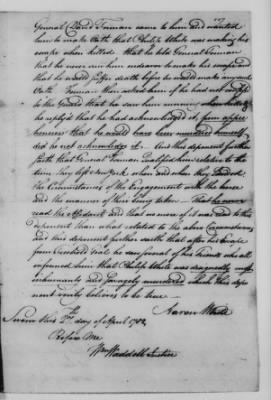 General David Forman came to him and wanted
him to make Oath that Philip White was making his
escape when killed that he told General Forman
that he never saw him endeavor to make his escape and
that he would suffer death before he would make any such
Oath Forman then asked him if he had not confessed
to the Guard that he saw him running when killed
he replyed that he had acknowledged it from appre
hensions that he would have been murdered himself
did he not acknowledge it And this deponent further
saith that General Forman Qualified him relative to the
time they left New York when and where they landed
the Circumstances of the Engagement with the horse
and the manner of their being taken That he never
read the Affidavit and that no more of it was to this
deponent than what related to the above Circumstances
and this deponent further saith that after his Escape
from Freehold Goal he was informed of his friends who all
informed him that Philip White was designedly and
inhumanly and savagely murdered which this depo
nent verily believes to be true
Aaron White
Sworn this 2nd day of April 1782
Before Me
Wm Waddell Justice